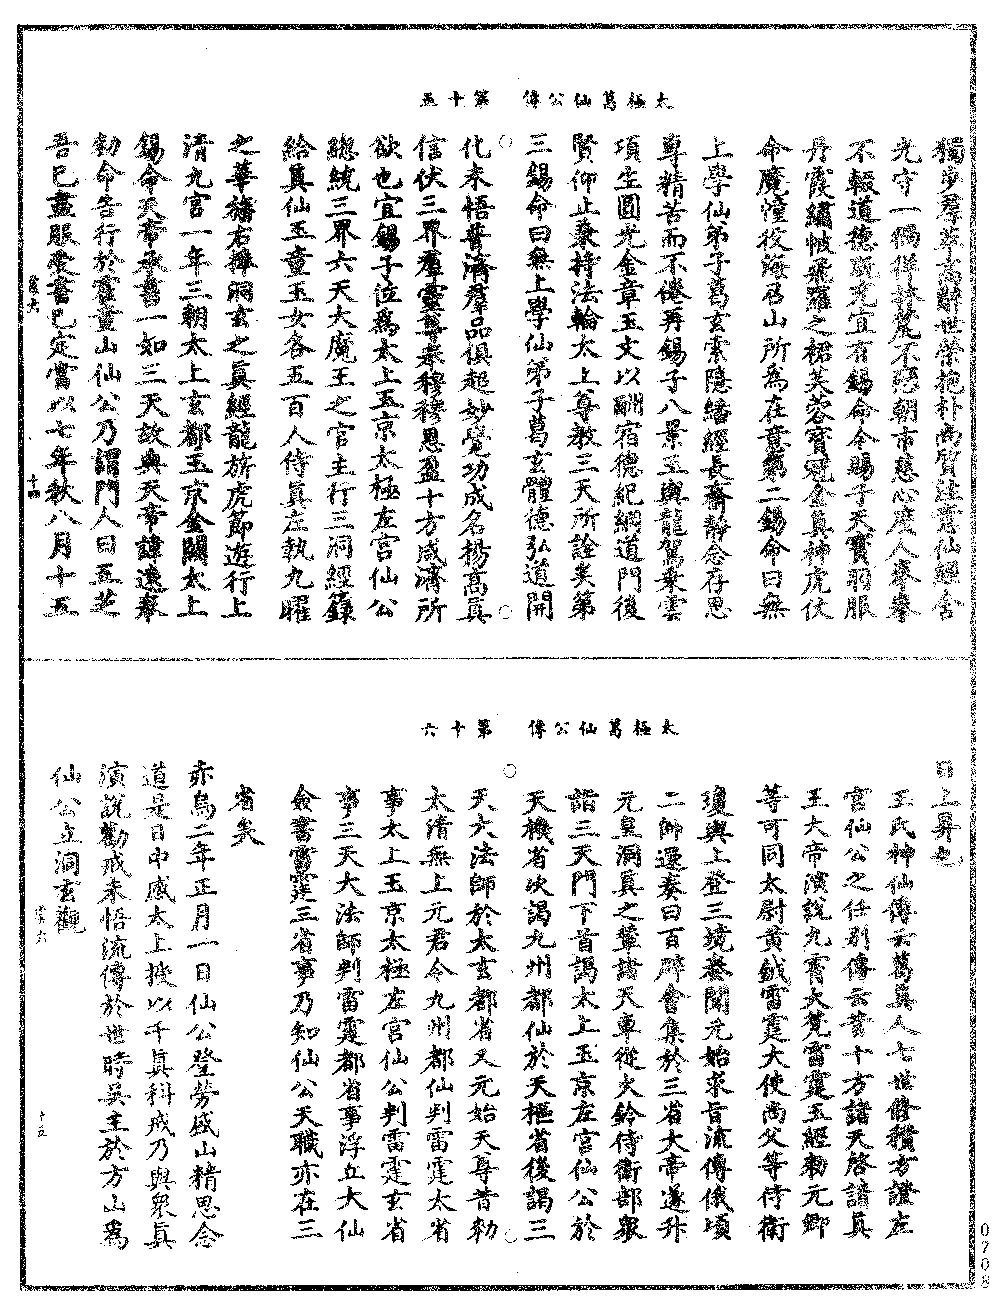 太極葛仙公傳　第十五
獨步羣萃高辭世榮抱朴尚質注意仙經含
光守一獨禪林麓不惡朝市慈心度人拳拳
不輟道德斯充宜有錫命今賜子天寶羽服
丹霞繡帔飛羅之裙芙蓉寶冠金真神虎伏
命魔幢役海召山所為在意第二錫命曰無
上學仙弟子葛玄素隱繙經長齋靜念存思
專精苦而不倦再錫子八景玉輿龍駕乘雲
項生圓光金章玉文以酬宿德紀綱道門後
賢仰止兼持法輪太上尊教三天所詮矣第
三錫命曰無上學仙弟子葛玄體德弘道開
化未悟普濟羣品俱超妙覺功成名揚高真
信伏三界羣靈尊奉穆穆恩盈十方咸濟所
欲也宜錫子位為太上玉京太極左宮仙公
總統三界六天大魔王之官主行三洞經籙
給真仙玉童玉女各五百人侍真左執九曜
之華旛右擁洞玄之真經龍旂虎節遊行上
清九宮一年三朝太上玄都玉京金闕太上
錫命天帝承書一如三天故典天帝諱遠奉
勑命告行於靈臺山仙公乃謂門人曰五芝
吾已盡服受書已定當以七年秋八月十五
太極葛仙公傳　第十六
日上昇也
王氏神仙傳云葛真人七世修積方證左
宮仙公之任別傳云昔十方諸天啓請真
王大帝演說九霄大梵雷霆玉經勅元卿
等可同太尉黃鉞雷霆大使尚父等侍衛
瓊輿上登三境奏聞元始求旨流傳俄頃
二帥還奏曰百辟會集於三省大帝遂升
元皇洞真之輦諸天車從火鈴侍衛部眾
詣三天門下首謁太上玉京左宮仙公於
天機省次謁九州都仙於天樞省後謁三
天大法師於太玄都省又元始天尊昔勑
太清無上元君令九州都仙判雷霆太省
事太上玉京太極左宮仙公判雷霆玄省
事三天大法師判雷霆都省事浮立大仙
僉書雷霆三省事乃知仙公天職亦在三
省矣
赤烏二年正月一日仙公登勞盛山精思念
道是日中感太上授以千真科戒乃與眾真
演說勸戒未悟流傳於世時吳主於方山為
仙公立洞玄觀
十四
十五
0708